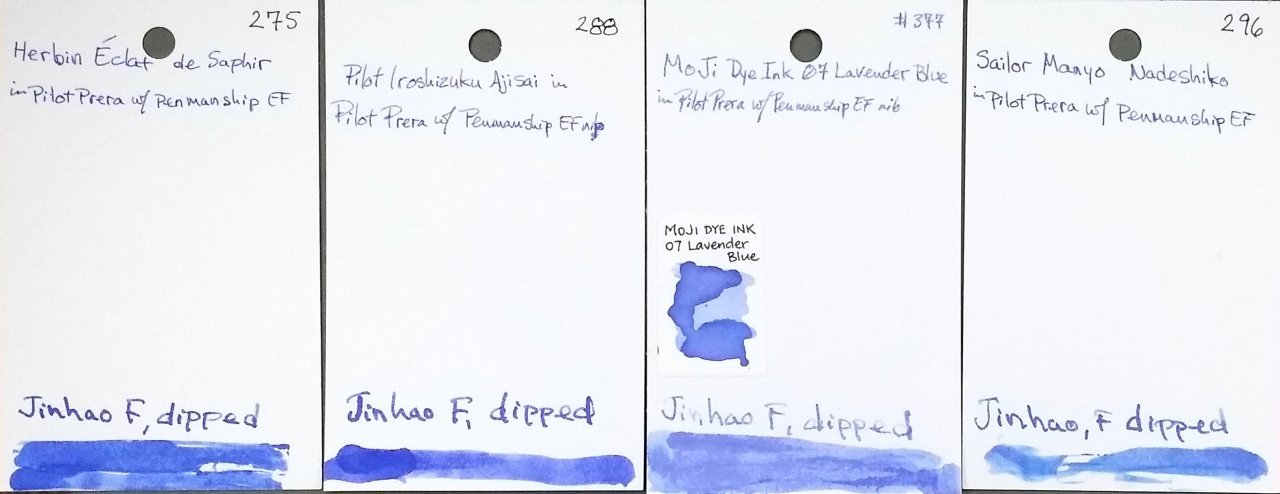 275
Herbin Éclat de Saphir
in Pilot Prera w/ Penmanship EF
Jinhao F, dipped
288
Pilot Iroshizuku Ajisai in
Pilot Prera w/ Penmanship EF nib
Jinhao F, dipped
#377
MoJi Dye Ink 07 Lavender Blue
in Pilot Prera w/ Penmanship EF nib
MOJI DYE INK
07 Lavender
Blue
Jinhao F, dipped
296
Sailor Manyo Nadeshiko
in Pilot Prera w/ Penmanship EF
Jinhao, F dipped